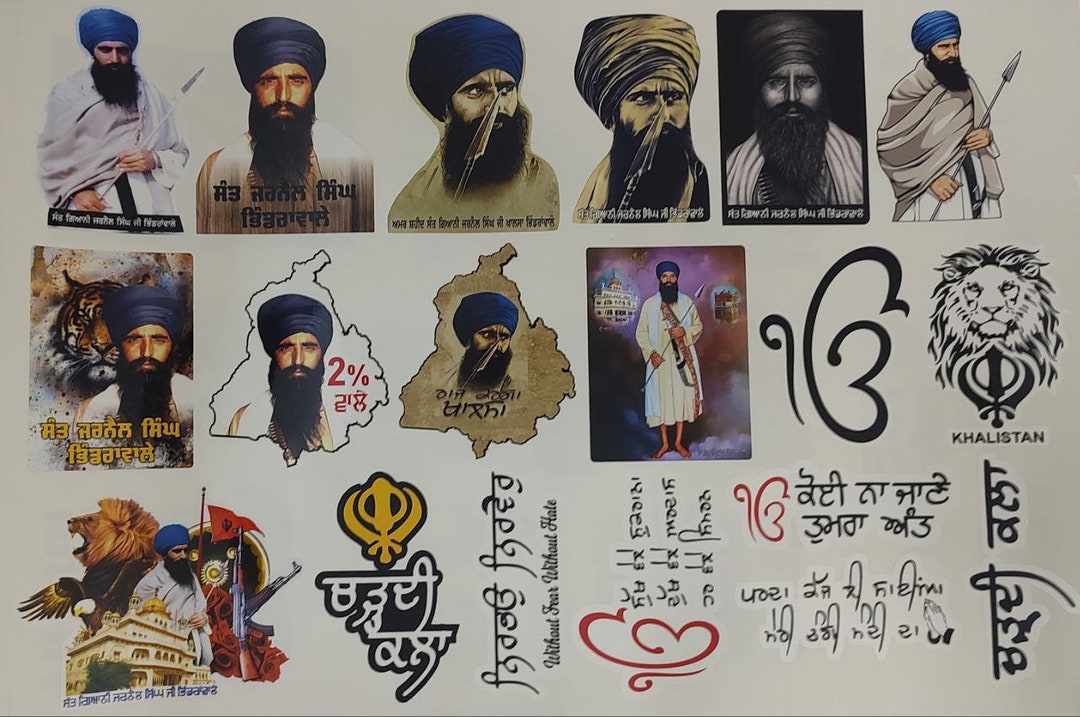 ਸੰਤ ਗਿਆਨੀ ਜਰਨੈਲ ਸਿੰਘ ਜੀ ਭਿੰਡਰਾਂਵਾਲੇ
ਸੰਤ ਜਰਨੈਲ ਸਿੰਘ
ਭਿੰਡਰਾਂਵਾਲੇ
ਅਮਰ ਸ਼ਹੀਦ ਸੰਤ ਗਿਆਨੀ ਜਰਨੈਲ ਸਿੰਘ ਜੀ ਖਾਲਸਾ ਭਿੰਡਰਾਂਵਾਲੇ
ਸੰਤ ਗਿਆਨੀ ਜਰਨੈਲ ਸਿੰਘ ਜੀ ਭਿੰਡਰਾਂਵਾਲੇ
ਸੰਤ ਗਿਆਨੀ ਜਰਨੈਲ ਸਿੰਘ ਜੀ ਭਿੰਡਰਾਂਵਾਲੇ
ਸੰਤ ਜਰਨੈਲ ਸਿੰਘ
ਭਿੰਡਰਾਂਵਾਲੇ
2%
ਵਾਲੇ
ਰਾਜ ਕਰੇਗਾ
ਖਾਲਸਾ
ੴ
KHALISTAN
ਸੰਤ ਗਿਆਨੀ ਜਰਨੈਲ ਸਿੰਘ ਜੀ ਭਿੰਡਰਾਂਵਾਲੇ
ਚੜ੍ਹਦੀ
ਕਲਾ
ਨਿਰਭਉ ਨਿਰਵੈਰੁ
Without Fear Without Hate
ੴ
ਸੁਖ ਵੇਲੇ ਸ਼ੁਕਰਾਨਾ
ਦੁੱਖ ਵੇਲੇ ਅਰਦਾਸ
ਹਰ ਵੇਲੇ ਸਿਮਰਨ
ੴ ਕੋਈ ਨਾ ਜਾਣੇ
ਤੁਮਰਾ ਅੰਤ
ਪਰਦਾ ਕੱਜ ਦੀ ਸਾਈਆ
ਮੇਰੀ ਚੰਗੀ ਮੰਦੀ ਦਾ
ਚੜ੍ਹਦੀ ਕਲਾ